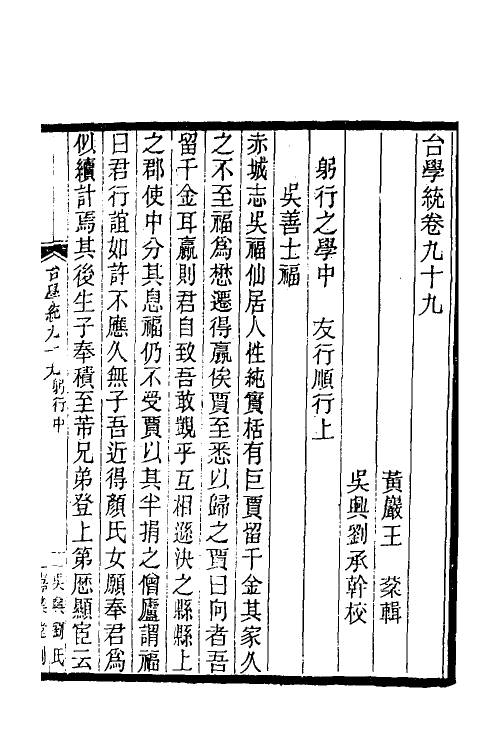 台學統卷九十九
黃巖王 棻輯
吳興劉承幹校
躬行之學中 友行順行上
吳善士福
赤城志吳福仙居人性純實栝有巨賈留千金其家久
之不至福爲懋遷得贏俟賈至悉以歸之賈曰向者吾
留千金耳贏則君自致吾敢覬乎互相遜決之縣縣上
之郡使中分其息福仍不受賈以其半捐之僧廬謂福
曰君行誼如許不應久無子吾近得顏氏女願奉君爲
似續計焉其後生子奉積至芾兄弟登上第歷顯宦云
台學統九十九 躬行中
一 吳興劉氏
嘉業堂刊